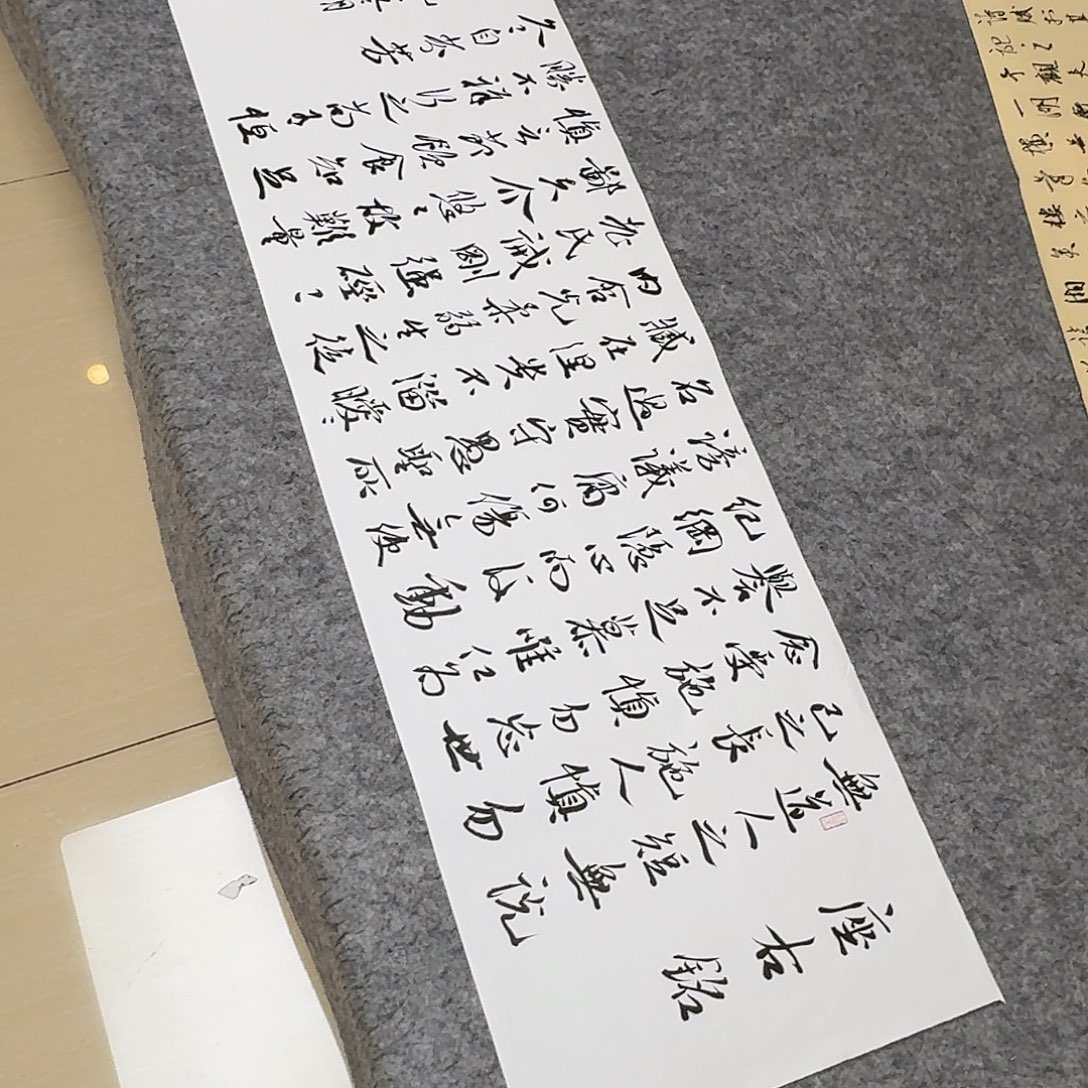 座右銘
無道人之短無說
己之長施人慎勿
念受施慎勿忘世
譽不足慕唯仁為
紀綱隱心而後動
謗議庸何傷無使
名過實守愚聖所
臧在涅貴不淄曖曖
內含光柔弱生之徒
老氏誡剛強硜硜
鄙夫介悠悠故難量
慎言節飲食知足
勝不祥行之苟有恆
久久自芬芳